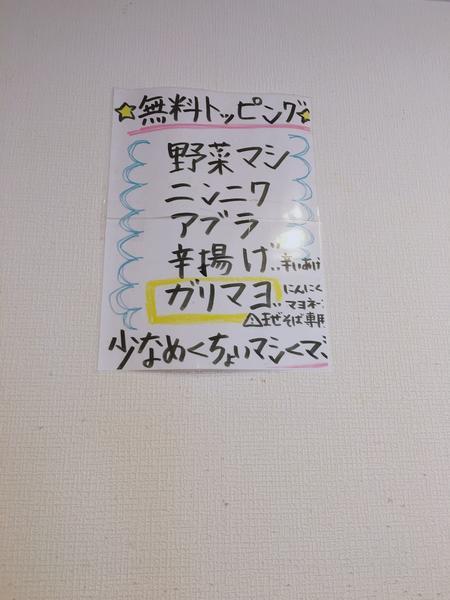 ★無料トッピング★
野菜マシ
ニンニク
アブラ
辛揚げ…辛いあげ
ガリマヨ…にんにく
マヨネー
⚠まぜそば専用
少なめくちょいマシくマシ